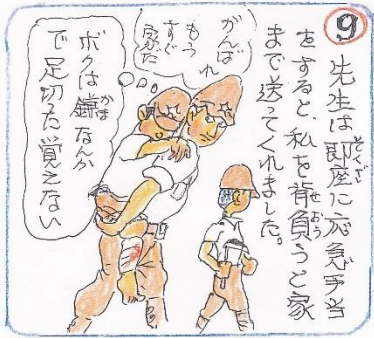 9
先生は即座に応急手当
そくざ
をすると、私を背負うと家
せお
まで送ってくれました。
がんばれ
もう
すぐ
家だ
ボクは鎌なんか
かま
で足切った覚えない